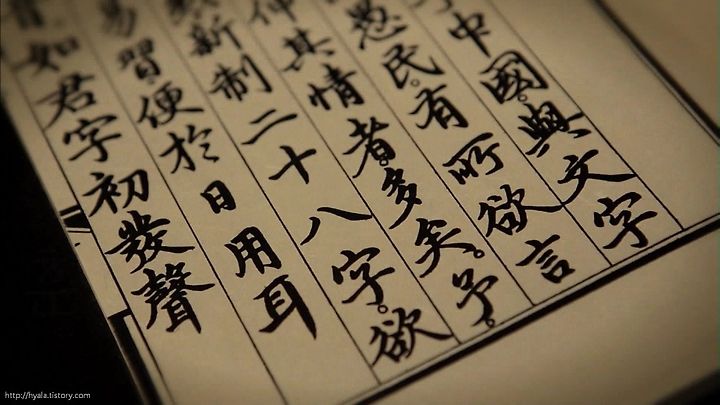 中國。與文字
愚民。有所欲言
伸其情者。多矣。予。
新制二十八字。欲
易習便於日用耳
如君字初發聲
http://hyala.tistory.com